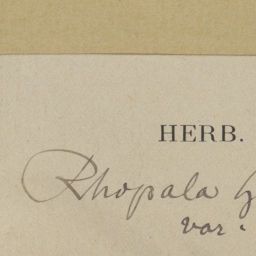 HERB.
Rhopala
var.